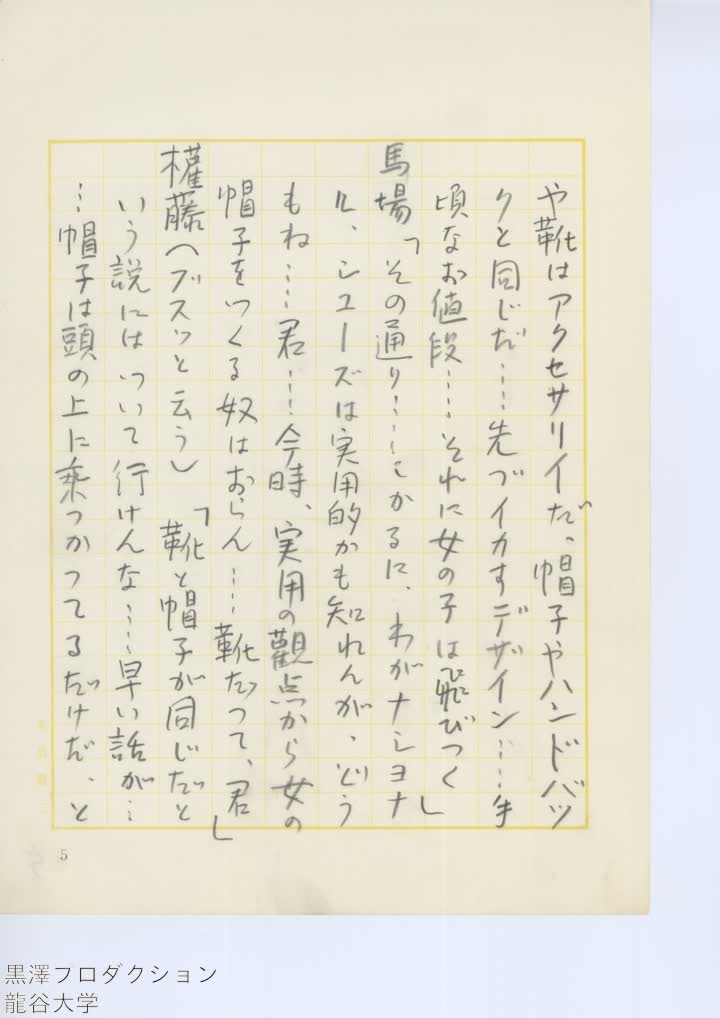 や靴はアクセサリイだ、帽子やハンドバッ
クと同じだ……先づイカすデザイン……手
頃なお値段……それに女の子は飛びつく」
馬場「その通り……しかるに、わがナショナ
ル、シューズは実用的かも知れんが、どう
もね……君……今時、実用の觀点から女の
帽子をつくる奴はおらん……靴だって、君」
権藤(ブスッと云う)「靴と帽子が同じだと
いう説にはついて行けんな……早い話が…
…帽子は頭の上に乗っかってるだけだ、と
5
黒澤プロダクション
龍谷大学